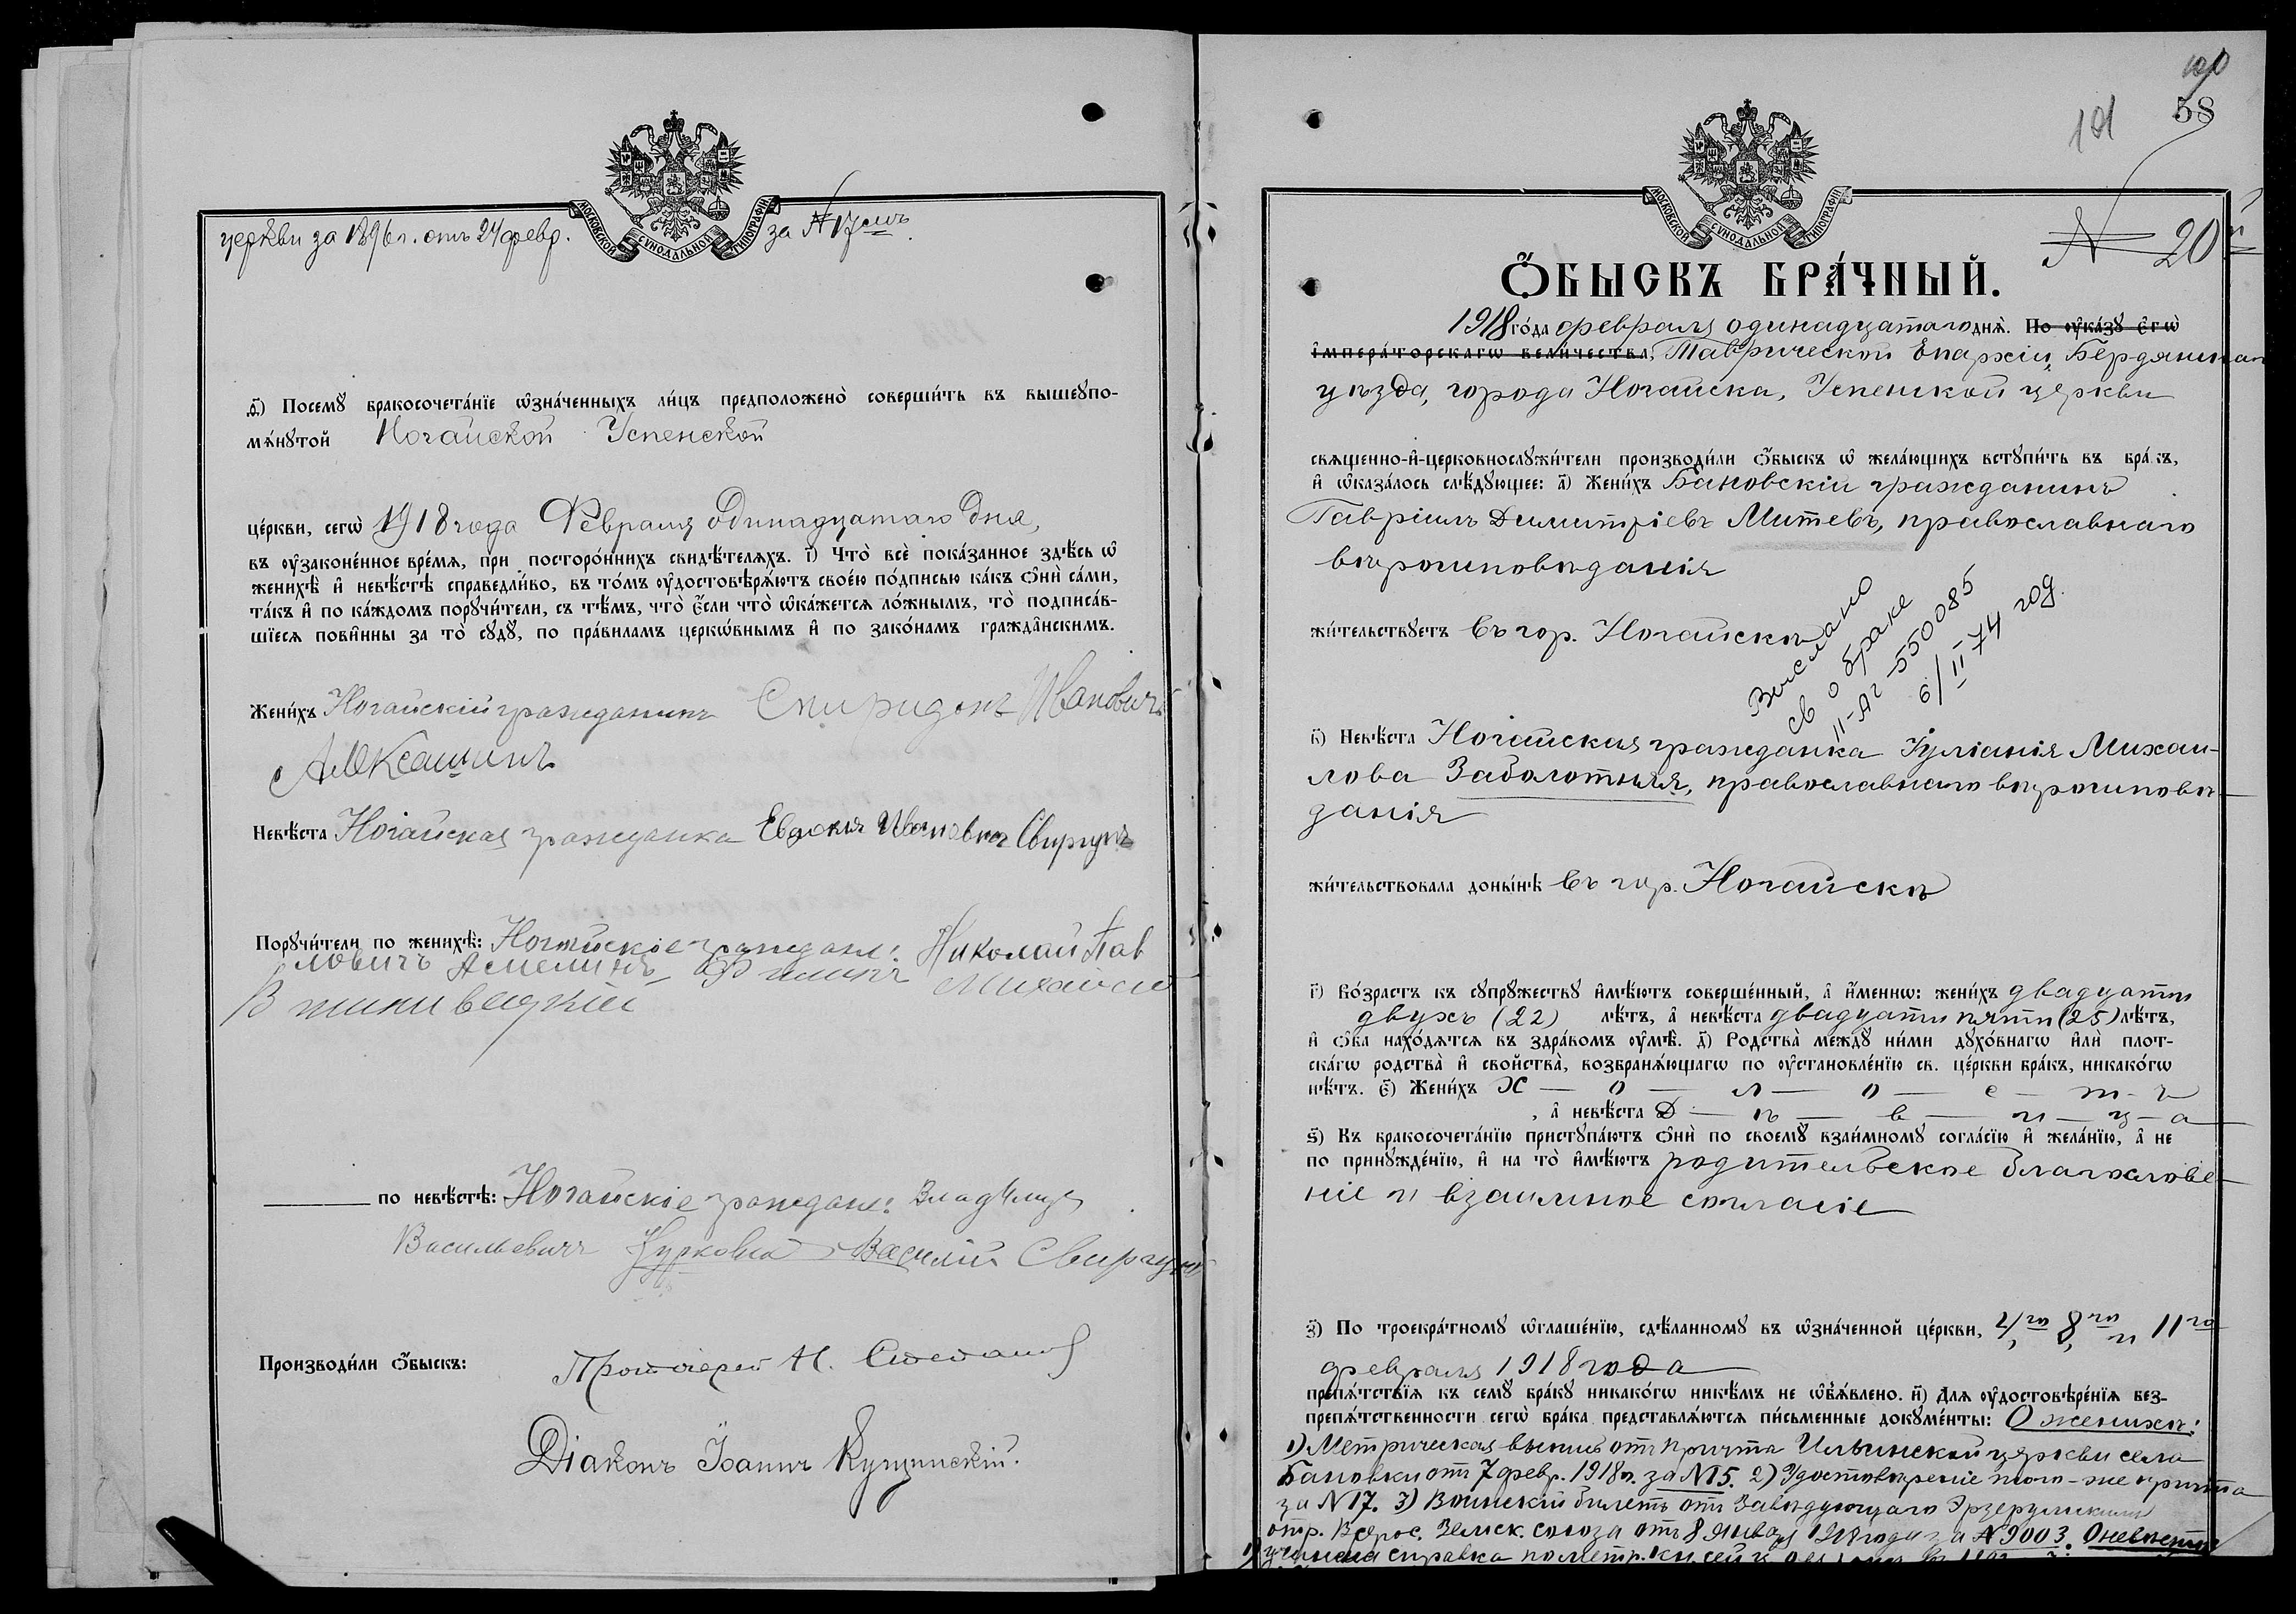 МОСКОВСКОЙ СѴНОДАЛЬНОЙ ТИПОГРАФІИ
церкви за 1896 г. отъ 24 февр. за № 17емъ.
д҃і) Посемꙋ бракосочета́нїе ѡзна́ченныхъ ли́цъ предположено̀ соверши́ть въ вышеꙋпо-
мѧ́нꙋтой Ногайской Успенской
це́ркви, сегѡ̀ 1918 года Февраля Одинадцатаго дня,
въ оу҆зако́ненное вре́мѧ, при посторо́ннихъ свидѣ́телѧхъ. і҃) Что̀ всѐ пока́занное здѣ́сь ѡ҆
женихѣ̀ и҆ невѣ́стѣ справедли́во, въ то́мъ оу҆достовѣрѧ́ютъ свое́ю по́дписью ка́къ ѻ҆нѝ са́ми,
та́къ и҆ по ка́ждомъ порꙋчи́тели, съ тѣ́мъ, что̀ є҆́сли что̀ ѡ҆ка́жетсѧ ло́жнымъ, то̀ подписа́в-
шїесѧ пови́нны за то̀ сꙋдꙋ̀, по пра́виламъ церко́внымъ и҆ по зако́намъ гражда́нскимъ.
Жени́хъ Ногайскій гражданинъ Спиридонъ Ивановичъ
Алексашинъ
Невѣ́ста Ногайская гражданка Евдокия Ивановна Свиргунъ
Порꙋчи́тели по женихѣ̀: Ногайскіе граждане: Николай Пав
ловичъ Амелинъ
по невѣ́стѣ: Ногайскіе граждане:
Васильевичъ Василій Свиргунъ
Производи́ли ѻ҆́быскъ: Протоіерей Н. Степановъ
Діаконъ Іоаннъ Кущинскій.
100
101 58
МОСКОВСКОЙ СѴНОДАЛЬНОЙ ТИПОГРАФІИ
№ 20й
Ѻ҆́БЫСКЪ БРА́ЧНЫЙ.
1918 го́да февраля одинадцатаго днѧ̀. По оу҆ка́зꙋ є҆гѡ̀
і҆мпера́торскагѡ вели́чества, Таврической Епархіи, Бердянскаго
уѣзда, города Ногайска, Успенской церкви
свѧщенно-и҆-церковнослꙋжи́тели производи́ли ѻ҆́быскъ ѡ҆ жела́ющихъ встꙋпи́ть въ бра́къ,
и҆ ѡ҆каза́лось слѣ́дꙋющее: а҃) Жени́хъ Бановскій гражданинъ
Гавріилъ Димитріевъ Митевъ, православнаго
вѣроисповѣданія
жи́тельствꙋетъ въ гор. Ногайскѣ
Выслано
св о браке
II-АГ-550085
6/II 74 год.
в҃) Невѣ́ста Ногайская гражданка Іуліанія Михаи-
лова Заболотняя, православнаго вѣроисповѣ-
данія
жи́тельствовала доны́нѣ въ гор. Ногайскѣ
г҃) Во́зрастъ къ сꙋпрꙋ́жествꙋ и҆мѣ́ютъ соверше́нный, а҆ и҆́меннѡ: жени́хъ двадцати
двухъ (22) лѣ́тъ, а҆ невѣ́ста двадцати пяти (25) лѣ́тъ,
и҆ ѻ҆́ба нахо́дѧтсѧ въ здра́вомъ оу҆мѣ̀. д҃) Родства̀ ме́ждꙋ ни́ми дꙋхо́внагѡ и҆лѝ плот-
ска́гѡ родства̀ и҆ свойства̀, возбранѧ́ющагѡ по оу҆становле́нїю св. це́ркви бра́къ, никако́гѡ
нѣ́тъ. є҃) Жени́хъ Х — о — л — о — с — т - ъ
, а҆ невѣ́ста Д — ѣ — в — и — ц — а
ѕ҃) Къ бракосочета́нїю пристꙋпа́ютъ ѻ҆нѝ по своемꙋ̀ взаи́мномꙋ согла́сїю и҆ жела́нїю, а҆ не
по принꙋжде́нїю, и҆ на то̀ и҆мѣ́ютъ родительское благослове-
ніе и взаимное согласіе
з҃) По троекра́тномꙋ ѡ҆глаше́нїю, сдѣ́ланномꙋ въ ѡ҆зна́ченной це́ркви, 4го, 8го, и 11го
февраля 1918 года
препѧ́тствїѧ къ семꙋ̀ бра́кꙋ никако́гѡ никѣ́мъ не ѡ҆б̾ѧ́влено. и҃) Длѧ оу҆достовѣре́нїѧ без-
препѧ́тственности сегѡ̀ бра́ка представлѧ́ютсѧ пи́сьменные докꙋме́нты: О женихѣ:
1) Метрическая выпись отъ причта Ильинской церкви села
Бановки отъ 7 февр. 1918 г. за № 15. 2) Удостовѣреніе того-же причта
за № 17. 3) Воинскій билетъ отъ Завѣдующаго Эрзерумскимъ
отр. Всерос. Земск. союза отъ 8 января 1918 года за № 9003. О невѣстѣ
1) учинена справка по метр. книгѣ